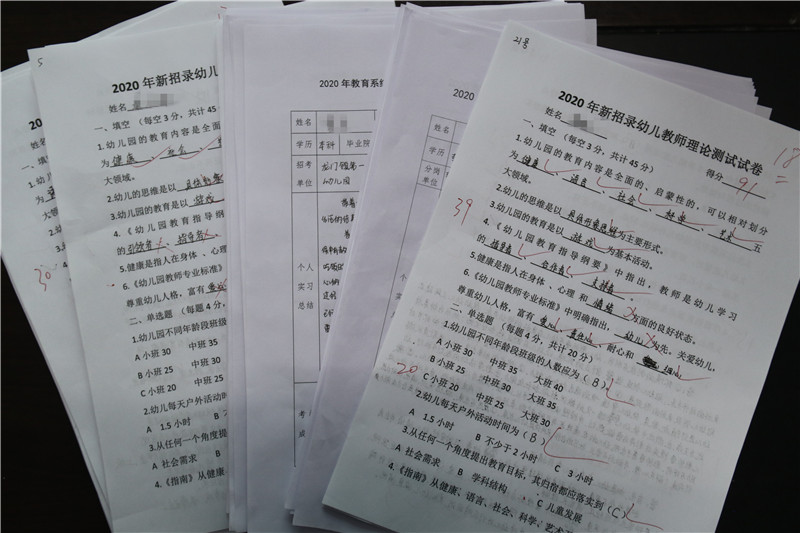 2020
姓名
一、填空
1.幼儿园
大领域。
2.幼儿
3.幼儿园
4.
30
5
2020 年新招录幼儿
姓名
一、填空 （每空 3 分，共计 45
1.幼儿园的教育内容是全面
为 健康
大领域。
2.幼儿的思维是以
3.幼儿园的教育是以 游戏
4. 《幼儿园教育指导纲
的
5.健康是指人在身体 、心理
6.《幼儿园教师专业标准》
尊重幼儿人格，富有
二、单选题 （每题 4 分，
1.幼儿园不同年龄段班级
A 小班 30 中班 35
B 小班 25 中班 30
C 小班 20 中班 25
2.幼儿每天户外活动时间
A 1.5 小时 B
3.从任何一个角度提
A 社会需求
4.《指南》从健康
2020 年教育系统
姓名
学历 本科 毕业院
招考
单位 龙门镇第一
幼儿园
个人
实习
总结
2020
姓名
学历
分岗
单位
2020 年新招录幼儿教师理论测试试卷
姓名
得分 91
18
一、填空 （每空 3 分，共计 45 分）
1.幼儿园的教育内容是全面的、启蒙性的，可以相对划分
为 健康、语言、社会、科学、艺术 五
大领域。
2.幼儿的思维是以 具体形象思维 为主要形式。
3.幼儿园的教育是以 游戏 为基本活动。
39
4. 《幼儿园教育指导纲要》中指出，教师是幼儿学习
的 指导者、合作者、支持者 。
5.健康是指人在身体 、心理 和 情绪 方面的良好状态。
6.《幼儿园教师专业标准》中明确指出，幼儿 为先，关爱幼儿，
尊重幼儿人格，富有 爱心、责任心、耐心和 细心
二、单选题 （每题 4 分，共计 20 分）
1.幼儿园不同年龄段班级的人数应为（ B ）。
A 小班 30 中班 35 大班 40
B 小班 25 中班 30 大班 35
20
C 小班 20 中班 25 大班 30
2.幼儿每天户外活动时间为（ B ）
A 1.5 小时 B 不少于 2 小时 C 3 小时
3.从任何一个角度提出教育目标，其归宿都应落实到（ C ）
A 社会需求 B 学科结构 C 儿童发展
4.《指南》从健康、语言、社会、科学、艺术